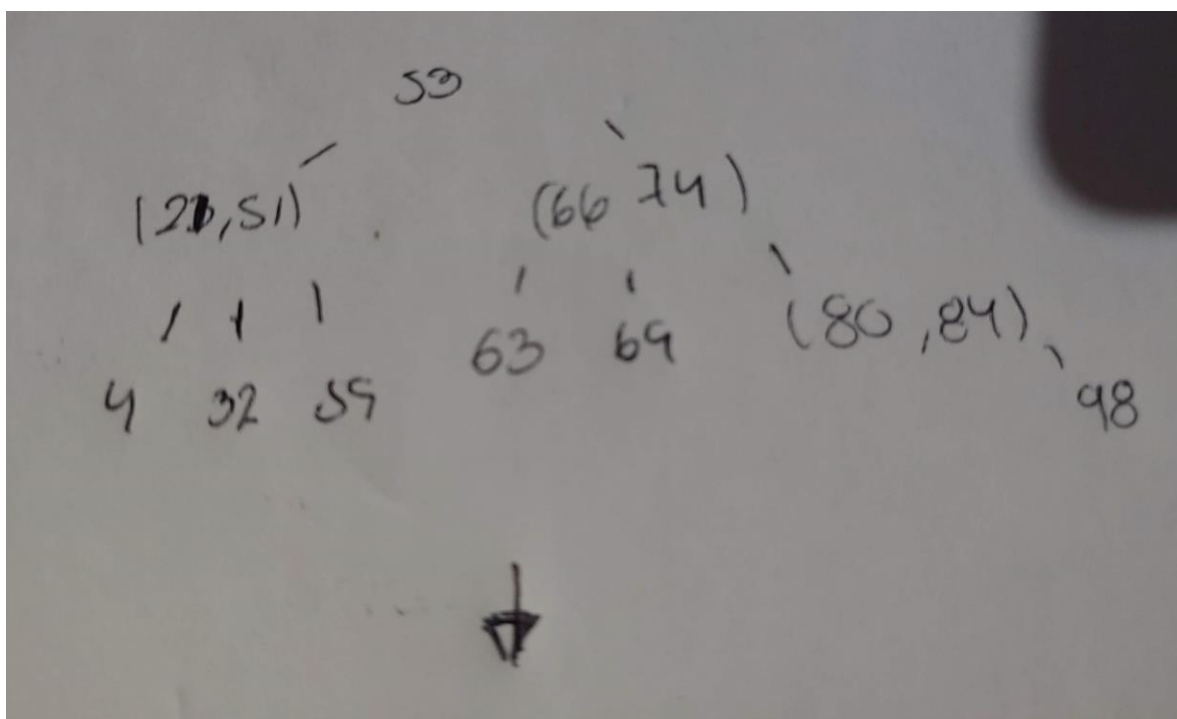 53
(21,51) (66 74)
63 69 (80,84)
4 32 59 98